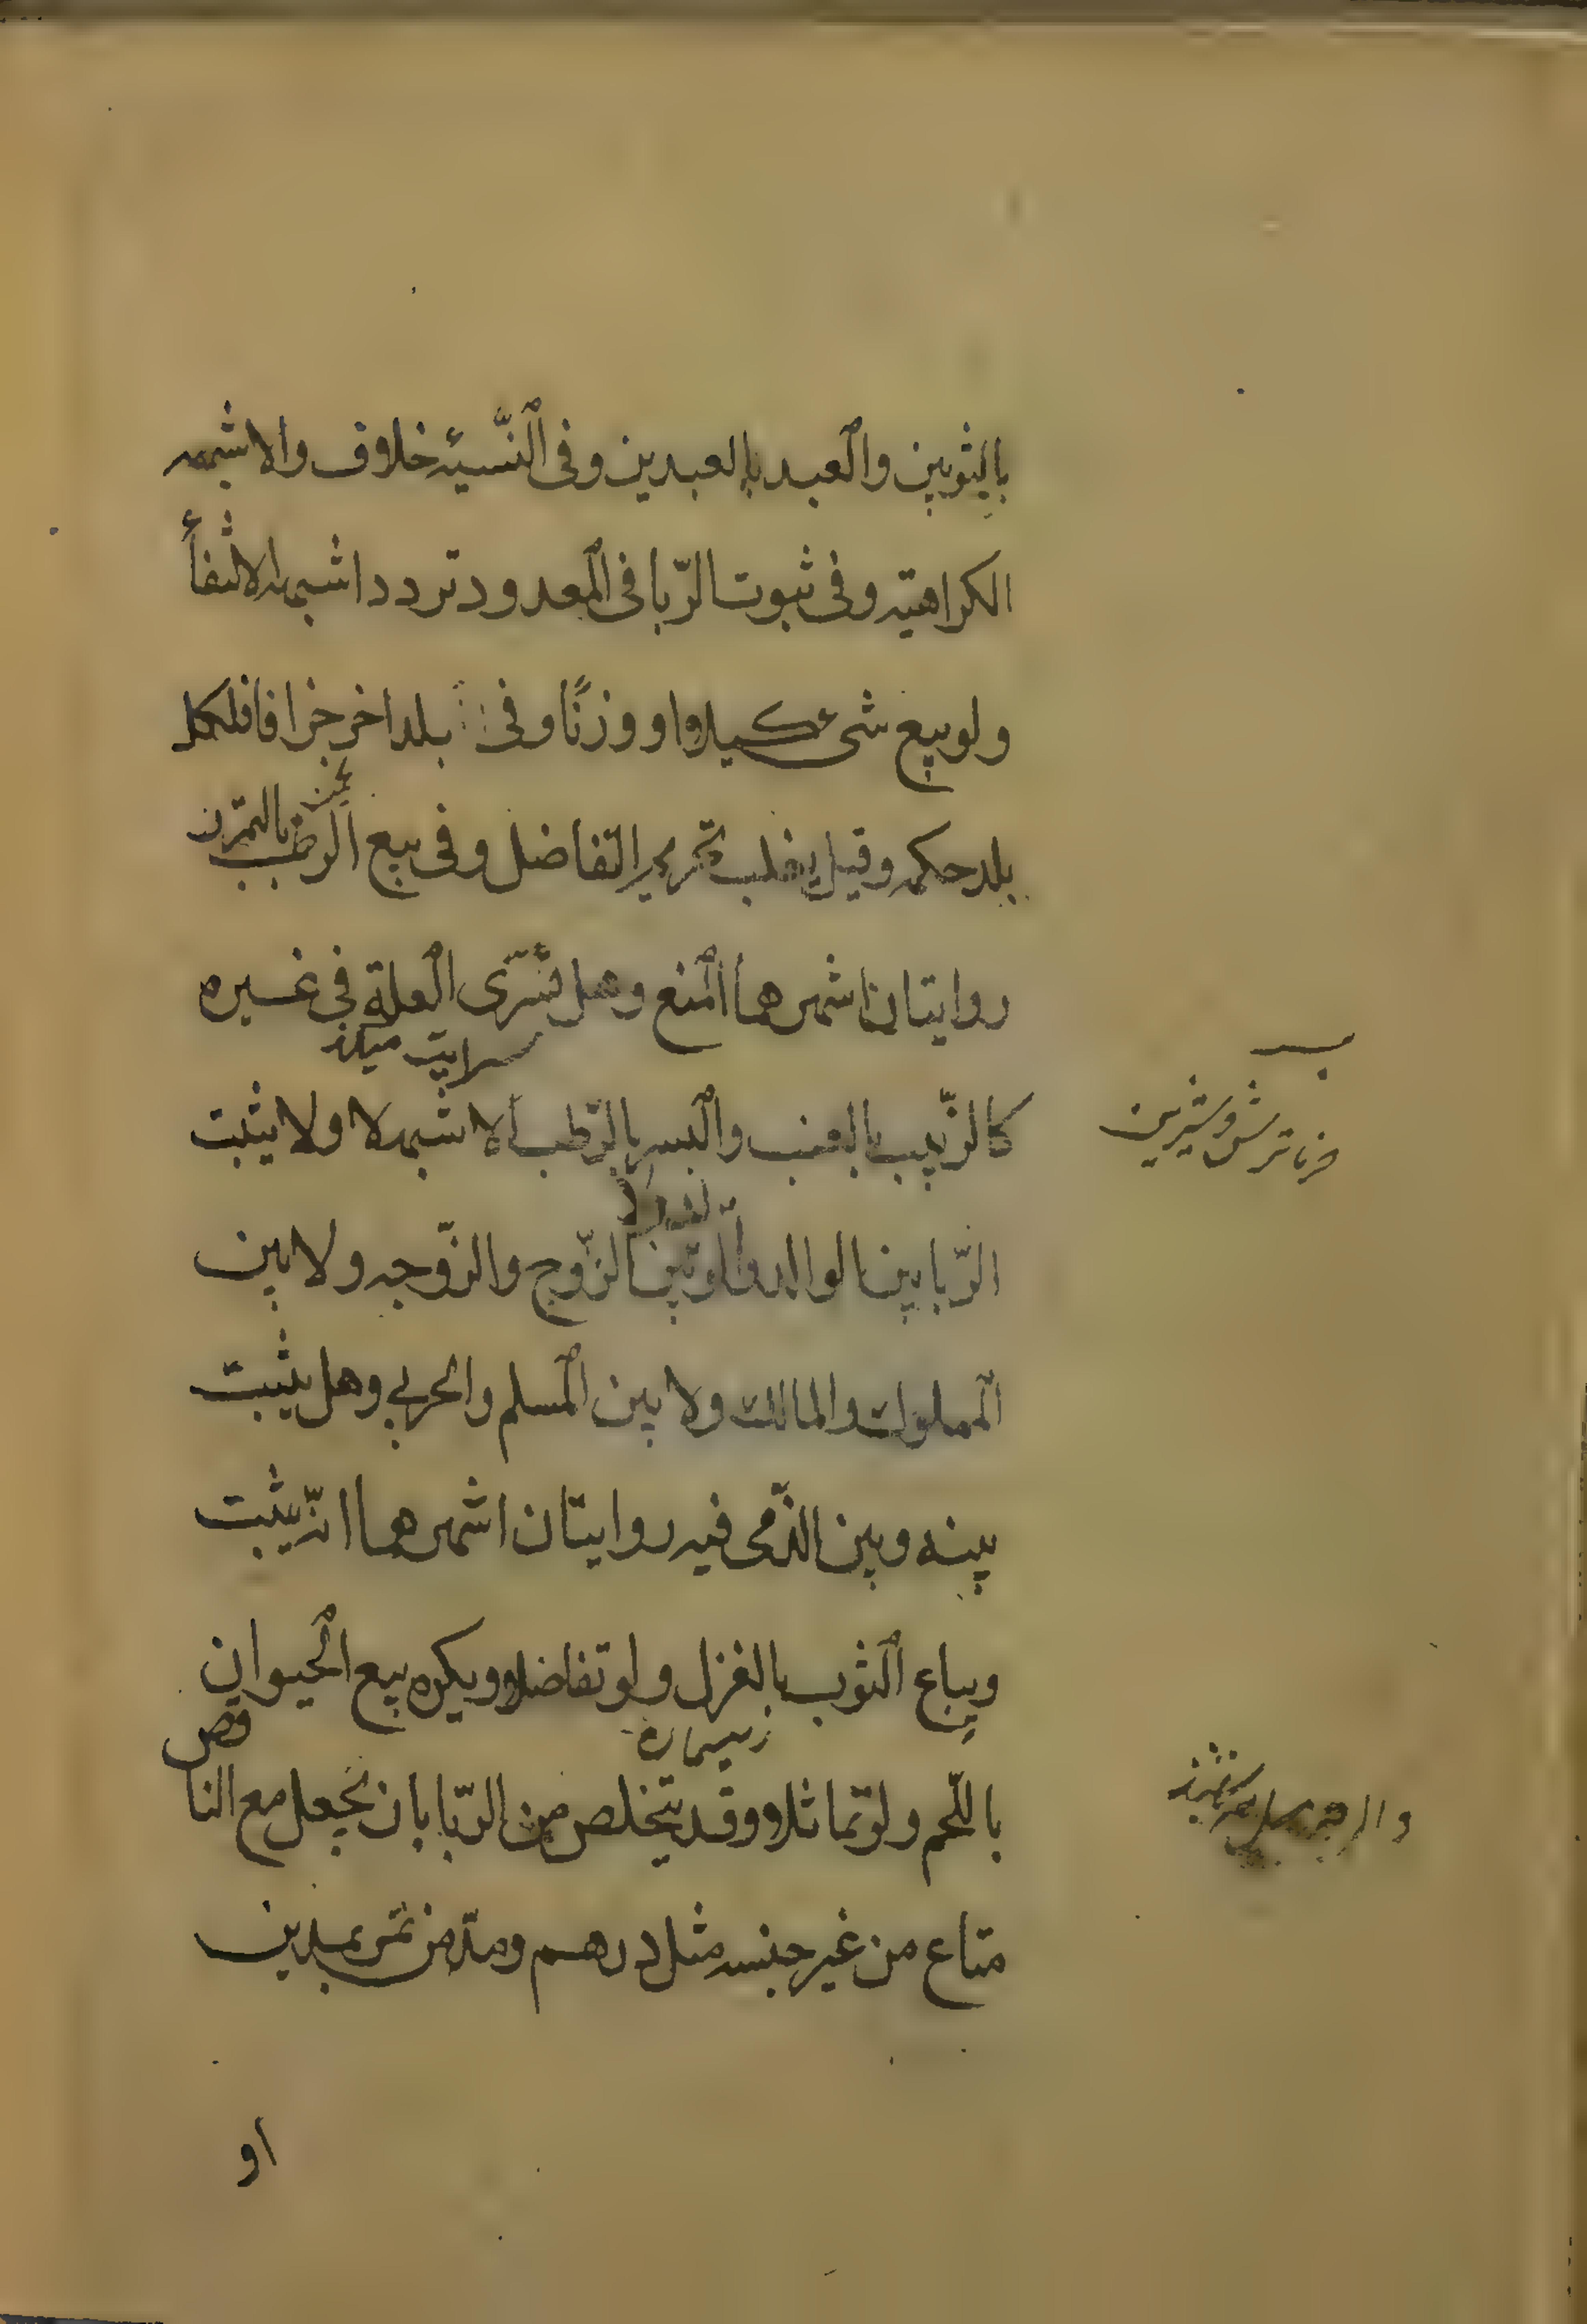 بالثوبين والعبد بالعبدين وفى النّسيئه خلاف والاشبه
الكراهيّه وفى ثبوت الرّبا فى المعدود تردد اشبهه الانتفأ
ولو بيع شىء كيلاوا ووزنًا وفى بلد اخر جزافا فلكل
بلد حكمه وقيل يغلب تحريم التفاضل وفى بيع الرطب بالتمر
روايتان اشهرهما المنع وهل تسّرى العلة فى غيره
سرايت ميكند
كالزّبيب بالعنب والبسر بالرّطب الاشبه لا ولا يثبت
خرما ترش وشيرين
الرّبا بين الوالد والولد وبين الزّوج والزّوجه ولا بين
المملوك والمالك ولا بين المسلم والحربي وهل يثبت
بينه وبين الذّمى فيه روايتان اشهرهما انّه يثبت
ويباع الثوب بالغزل ولو تفاضلا ويكره بيع الحيوان
باللّحم ولو تماثلا وقد يتخلص من الرّبا بان يجعل مع الناقص
متاع من غير جنسه مثل درهم ومدّ من تمر بمدين
او